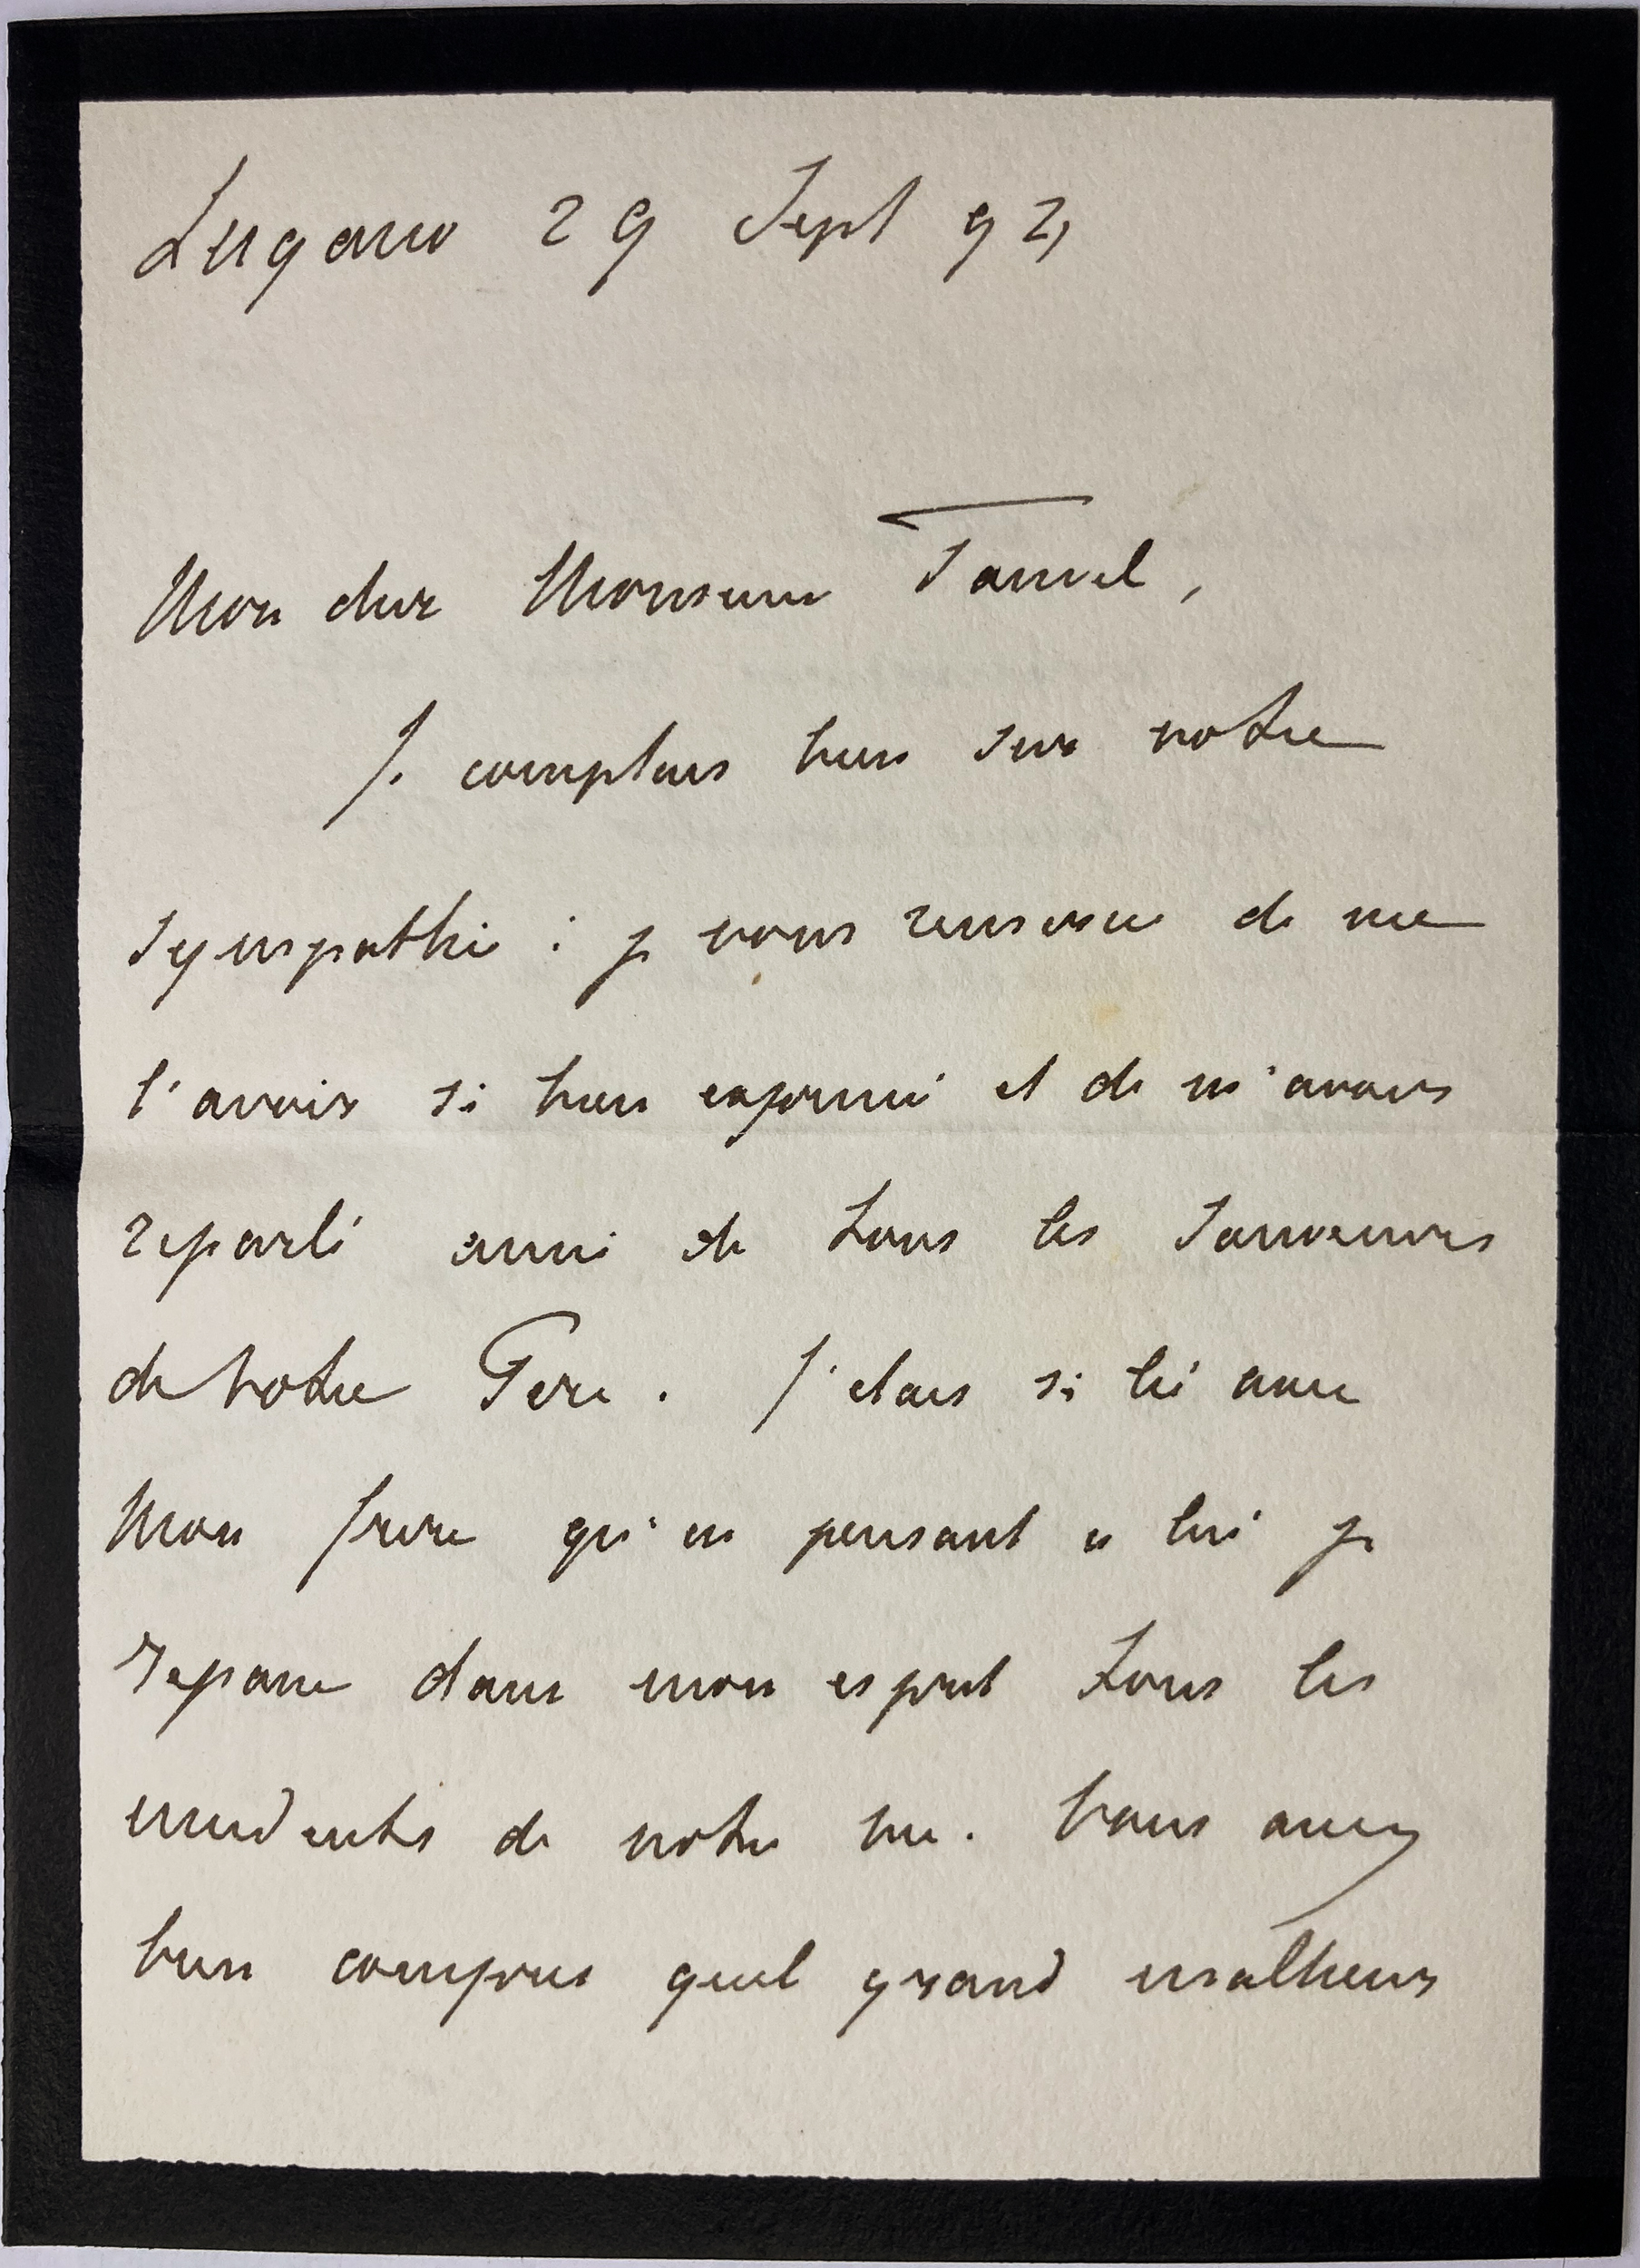 Lugano 29 Sept 92,
Mon cher Monsieur Famel,
Je comptais bien sur votre
sympathie : je vous remercie de me
l'avoir si bien exprimé et de m'avoir
reparlé aussi de tous les souvenirs
de votre Père. J'étais si lié avec
Mon frère qu'en pensant à lui je
repasse dans mon esprit tous les
incidents de notre vie. Vous avez
bien compris quel grand malheur